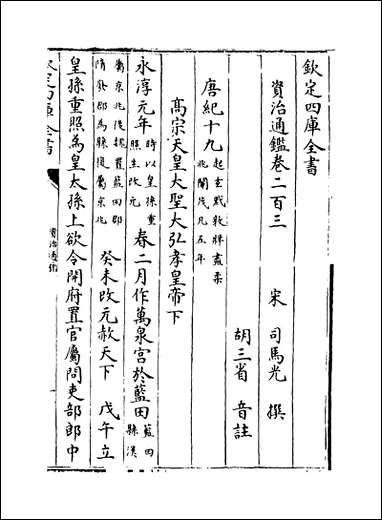 欽定四庫全書
資治通鑑卷二百三
宋 司馬光 撰
胡三省 音註
唐紀十九 起玄黓敦牂盡柔兆閹茂凡五年
高宗天皇大聖大弘孝皇帝下
永淳元年 時以皇孫重照生改元 春二月作萬泉宫於藍田 藍田縣漢
屬京兆後魏置藍田郡隋廢郡為縣復屬京兆 癸未改元赦天下 戊午立
皇孫重照為皇太孫上欲令開府置官屬問吏部郎中